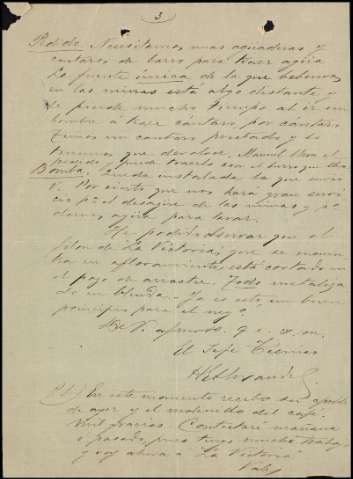 3
Pedido. Necesitamos unas aguaderas y
cantaros de barro para traer agua
La fuente única de la que bebemos
en las minas está algo distante, y
se pierde mucho tiempo al ir un
hombre á hacer cántaro, por cántaro
Tenemos un cantaro prestado y lo
tenemos que devolver. Manuel lleva el
pedido, y puede traerlo con el burro que
Bomba. Queda instalada la que envió
V. Por cierto que nos hará gran servi
cio pª el desagüe de las minas y pa
darnos agua para lavar.
He podido observar que el
filon de La Victoria, que se
en afloramiento, está cortado en
el pozo de arrastre. Todo metaliza
do en blenda. Ya es este, un buen
principio para el neg
De V. afmo. q. e. s. m.
El Jefe Técnico
P.D. En este momento recibo su grata
de ayer y el molinillo del café.
Mil gracias. Contestaré mañana
o pasado, pues tengo mucho trabajo,
y voy ahora a "La Victoria"
Vale